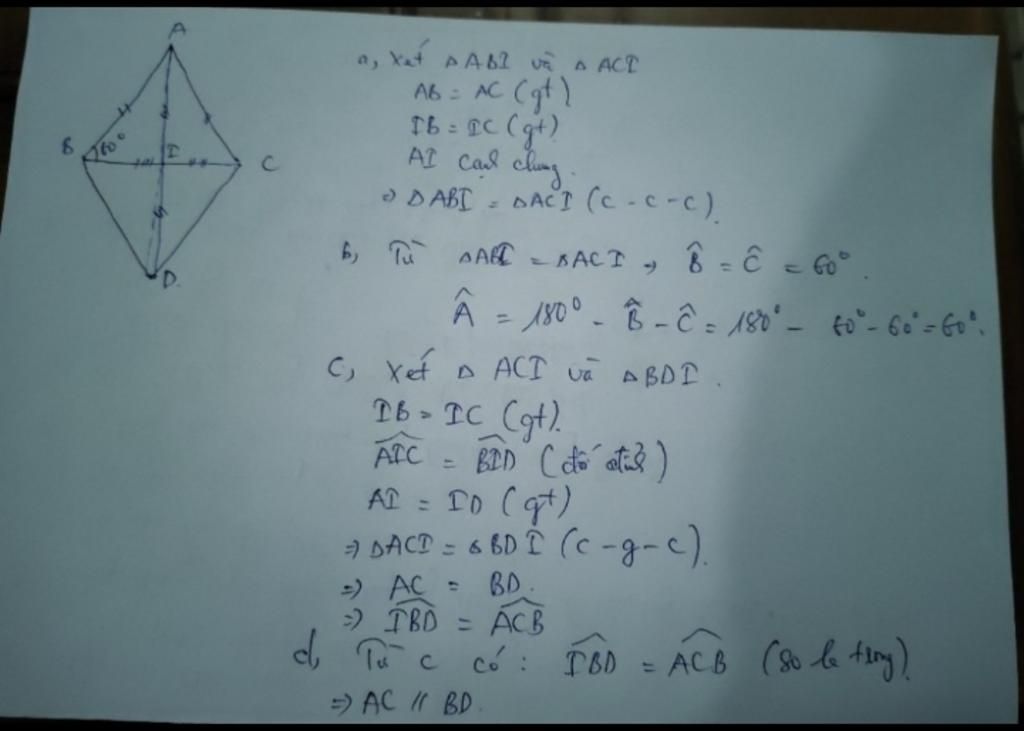 A
B
60°
I
C
D.
a, Xét △ABI và △ACI
AB = AC (gt)
IB = IC (gt)
AI cạnh chung.
=> △ABI = △ACI (c-c-c).
b, Từ △ABI = △ACI => B̂ = Ĉ = 60°.
Â = 180° - B̂ - Ĉ = 180° - 60° - 60° = 60°.
C, Xét △ ACI và △BDI.
IB = IC (gt).
AIC̑ = BID̑ (đối đỉnh)
AI = ID (gt)
=> △ACI = △BDI (c-g-c).
=> AC = BD.
=> IBD̑ = ACB̑
d, Từ c có: IBD̑ = ACB̑ (so le trong)
=> AC // BD.